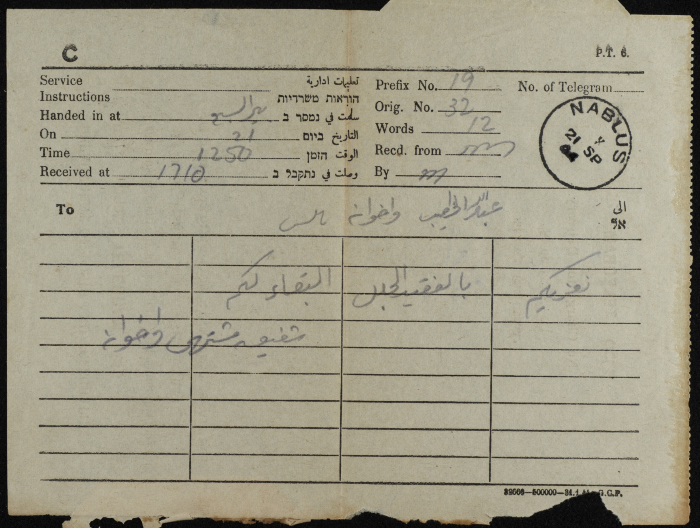 C
P.T. 6.
Service تعليمات ادارية
Instructions הוראות משרדיות
Handed in at بير السبع سلمت في נמסר ב
On 21 التاريخ ביום
Time 1250 الوقت הזמן
Received at 1710 وصلت في נתקבל ב
Prefix No. 19 No. of Telegram
Orig. No. 32
Words 12
Recd. from
By
NABLUS
21 SP
To عبدالله الخطيب واخوانه نابلس الى
אל
نعزيكم بالفقيد الجليل البقاء لكم
شفيق مشتهى واخوانه
G.C.P.